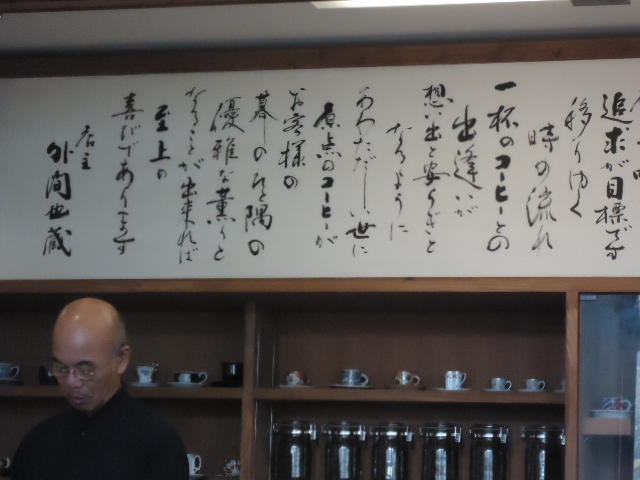 追求が目標です
移りゆく
時の流れ
一杯のコーヒーとの
出逢いが
想い出と安らぎと
なるように
あわただしい世に
原点のコーヒーが
お客様の
暮しの片隅の
優雅な薫りと
なることが出来れば
至上の
喜びであります
店主
外間也蔵